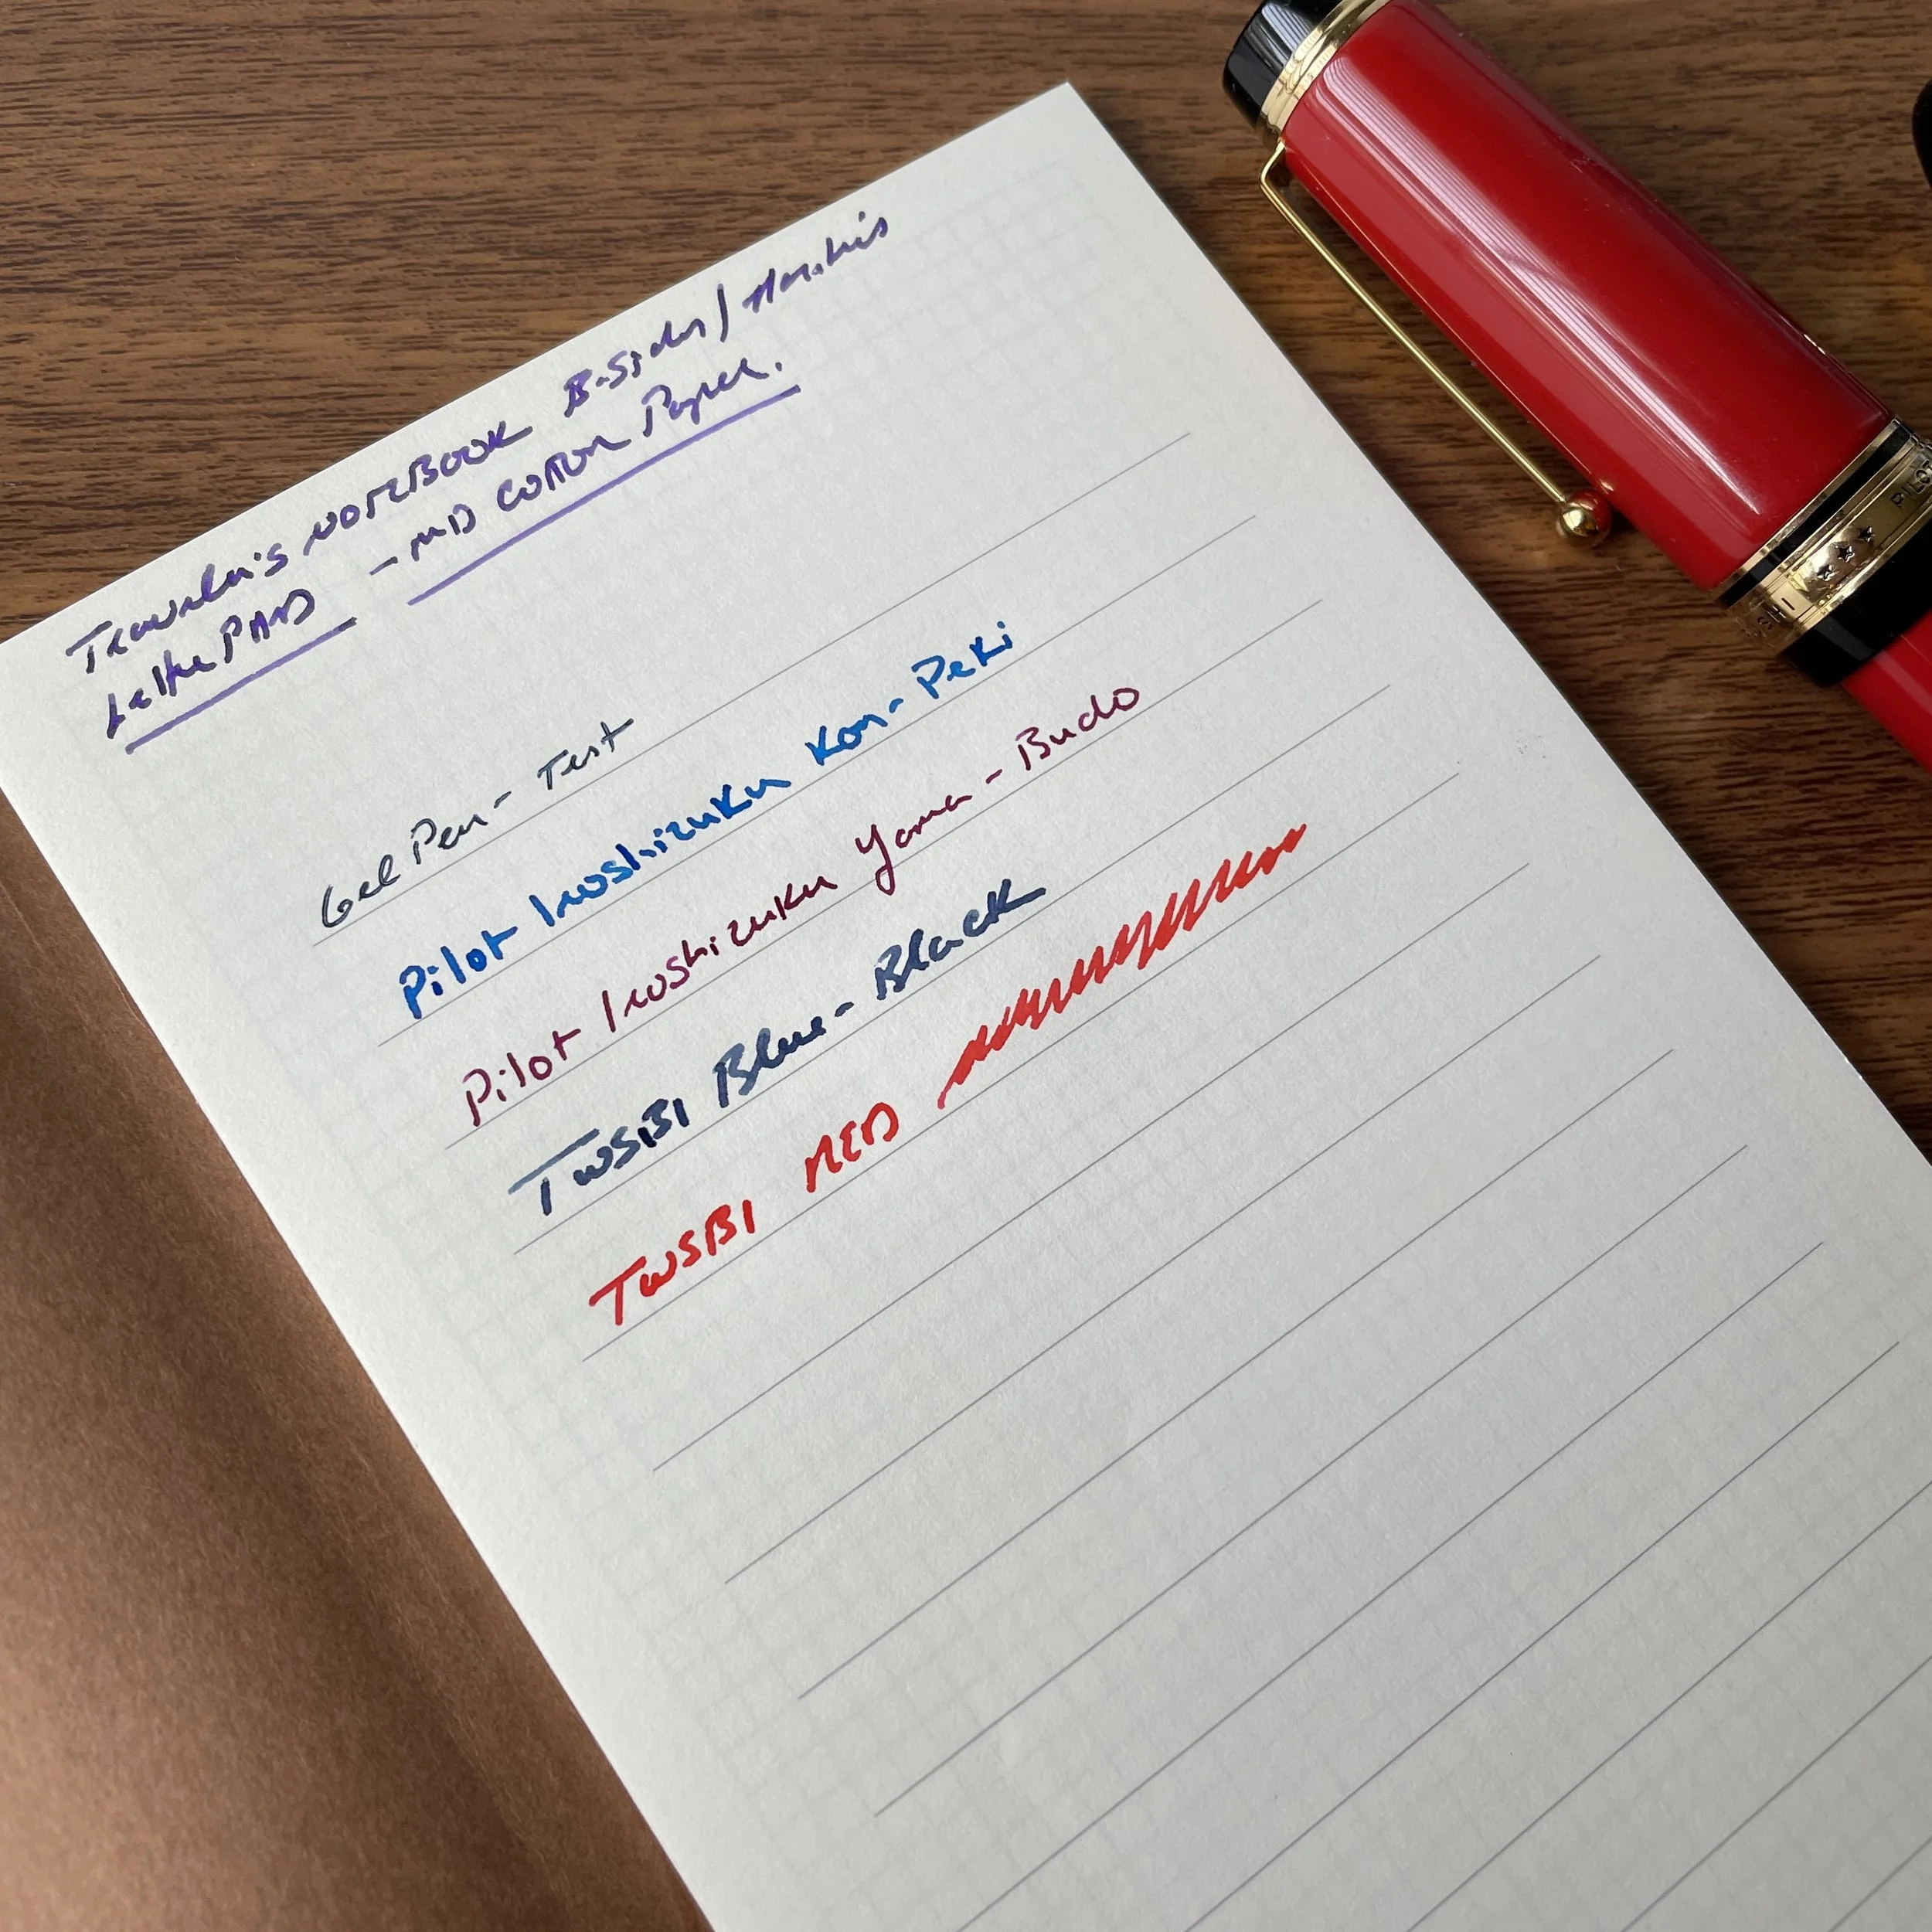 Traveler's NOTEBOOK B-Sides/
Letter PAD - MD COTTON Paper.
Gel Pen - Test
Pilot Iroshizuku Kon-Peki
Pilot Iroshizuku Yama-Budo
TWSBI Blue-Black
TWSBI RED